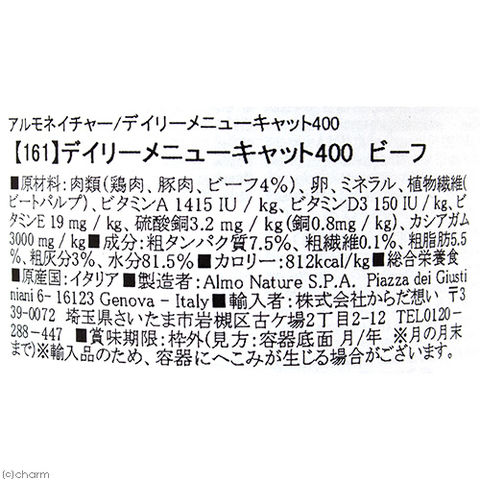 アルモネイチャー/デイリーメニューキャット400
【161】デイリーメニューキャット400 ビーフ
■原材料:肉類(鶏肉、豚肉、ビーフ4%)、卵、ミネラル、植物繊維(
ビートパルプ)、ビタミンA 1415 IU / kg、ビタミンD3 150 IU / kg、ビ
タミンE 19 mg / kg、硫酸銅3.2 mg / kg (銅0.8mg / kg)、カシアガム
3000 mg / kg■成分:粗タンパク質7.5%、粗繊維0.1%、粗脂肪5.5
%、粗灰分3%、水分81.5%■カロリー:812kcal/kg■総合栄養食
■原産国:イタリア■製造者:Almo Nature S.P.A. Piazza dei Giusti
niani 6- 16123 Genova - Italy■輸入者:株式会社からだ想い 〒3
39-0072 埼玉県さいたま市岩槻区古ケ場2丁目2-12 TEL0120-
288-447 ■賞味期限:枠外(見方:容器底面 月/年 ※月の月末
まで)※輸入品のため、容器にへこみが生じる場合がございます。
(c)charm